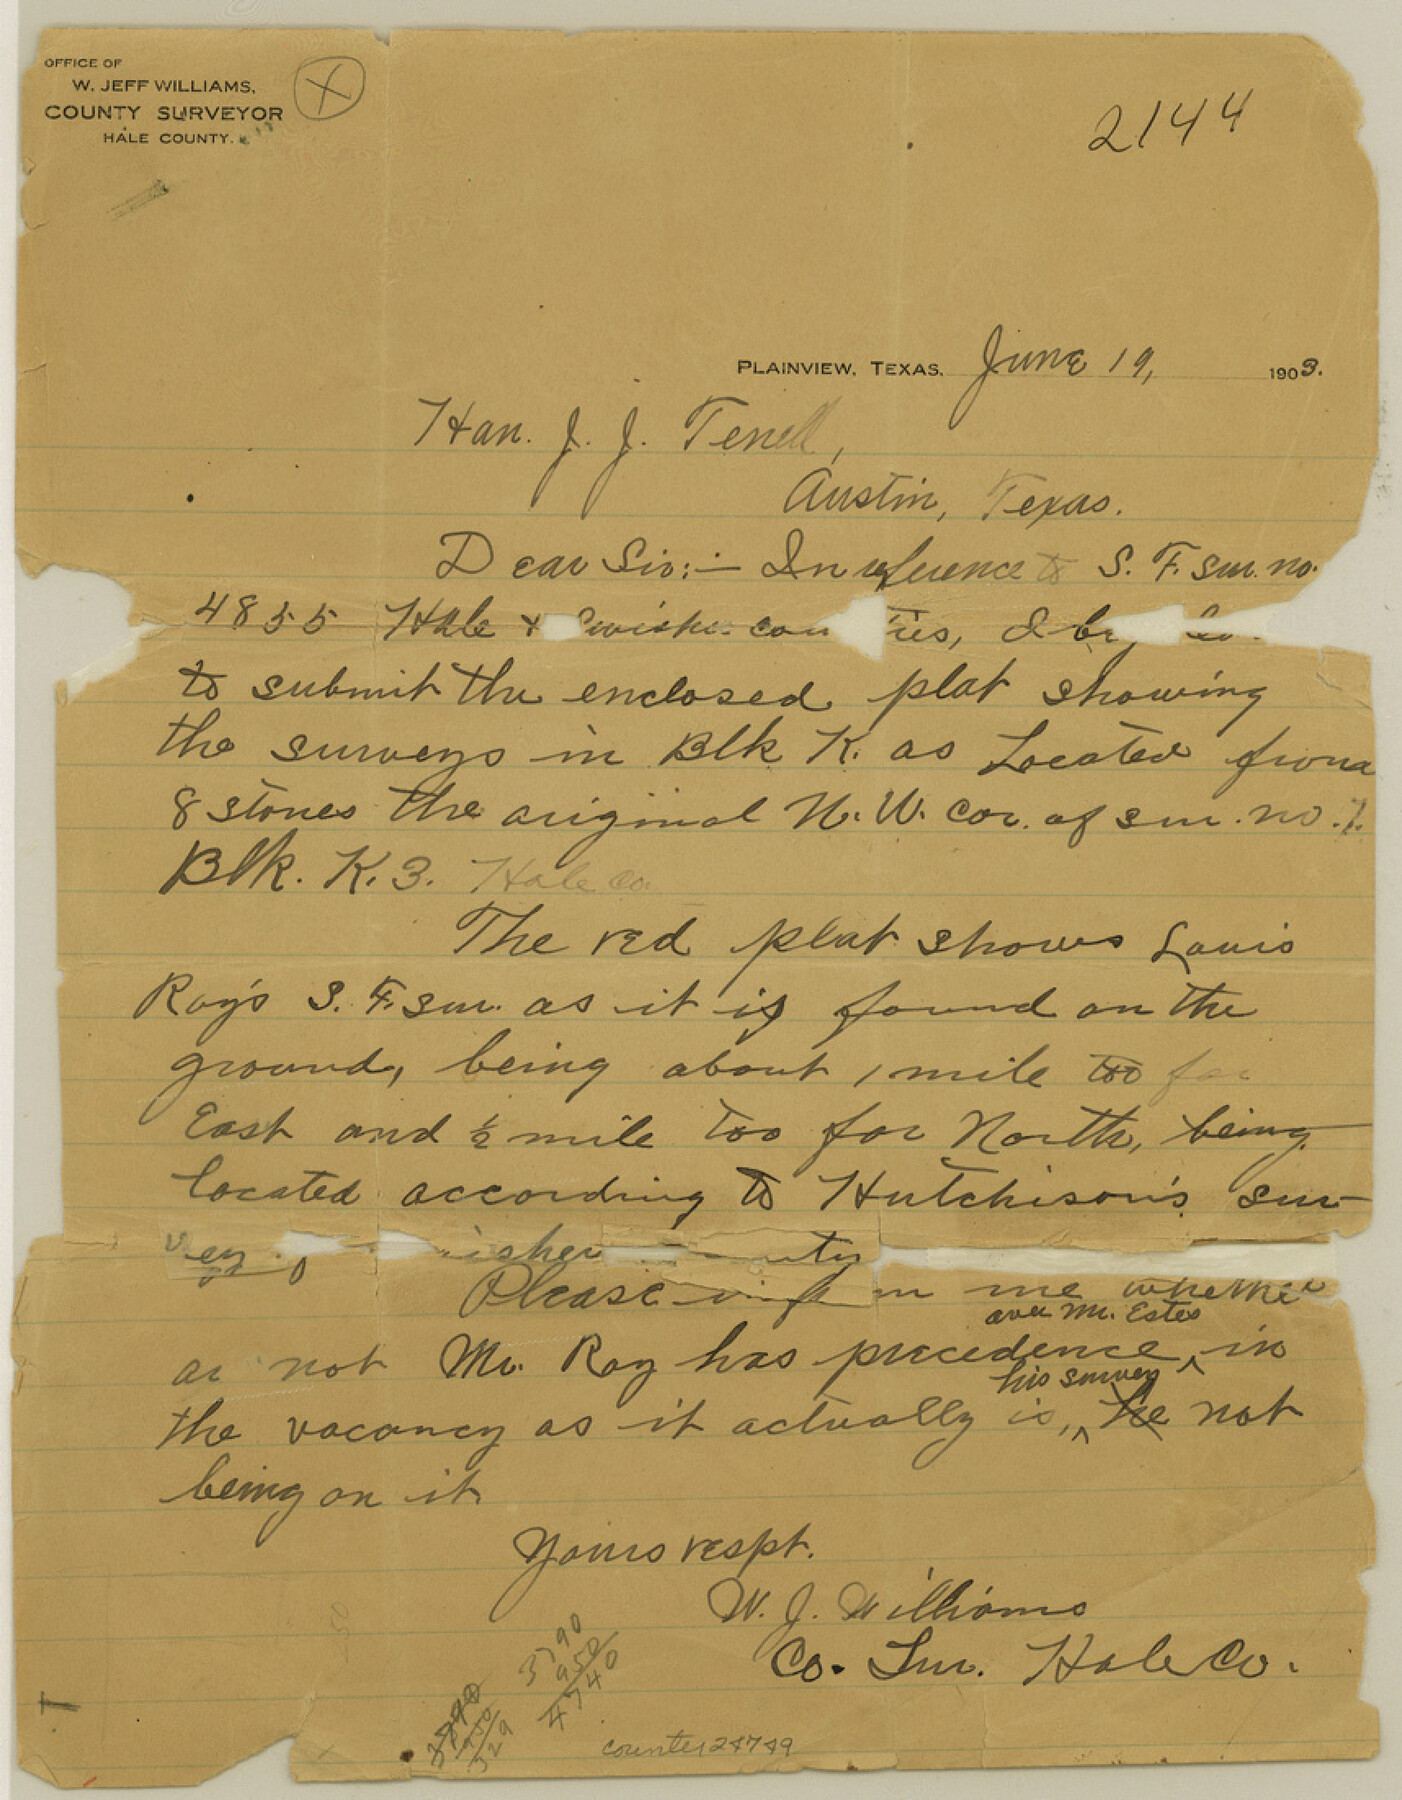 OFFICE OF
W. JEFF WILLIAMS,
COUNTY SURVEYOR
HALE COUNTY.
X
2144
PLAINVIEW, TEXAS. June 19, 1903.
Hon. J. J. Terrell,
Austin, Texas.
Dear Sir:— In reference to S. F. sur. no.
4855 Hale & Swisher counties, I beg
to submit the enclosed plat showing
the surveys in Blk K. as Located from
8 stones the original N. W. cor. of sur. no. 1.
Blk. K. 3. Hale Co.
The red plat shows Louis
Ray's S. F. sur. as it is found on the
ground, being about 1 mile too far
East and ½ mile too far North, being
located according to Hutchison's sur-
vey
Please inform me whether
over Mr. Estes
or not Mr. Ray has precedence ^ in
his survey
the vacancy as it actually is, ^ he not
being on it
Yours respt.
W. J. Williams
Co. Sur. Hale Co.
3790
950
4740
950
counter 24749